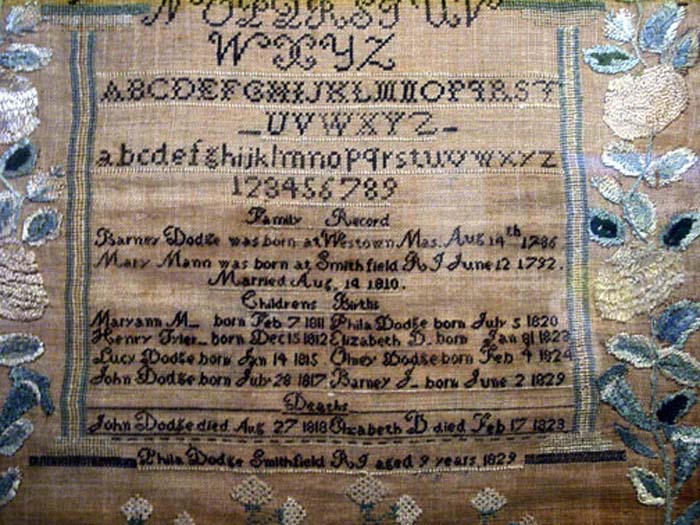 N O P Q R S T U V
W X Y Z
ABCDEFGHIJKLMNOPQRST
UVWXYZ
abcdefghijklmnopqrstuvwxyz
123456789
Family Record
Barney Dodge was born at Westown Mas. Aug 14th 1786
Mary Mann was born at Smithfield R I June 12 1792.
Married Aug. 14 1810.
Childrens Births
Maryann M_ born Feb 7 1811 Phila Dodge born July 5 1820
Henry Tyler_ born Dec 15 1812 Elizabeth D. born Jan 31 1823
Lucy Dodge born Jan 14 1815 Olney Dodge born Feb 4 1824
John Dodge born July 28 1817 Barney J_ born June 2 1829
Deaths
John Dodge died Aug 27 1818 Elizabeth D died Feb 17 1823
Phila Dodge Smithfield R I aged 9 years 1829